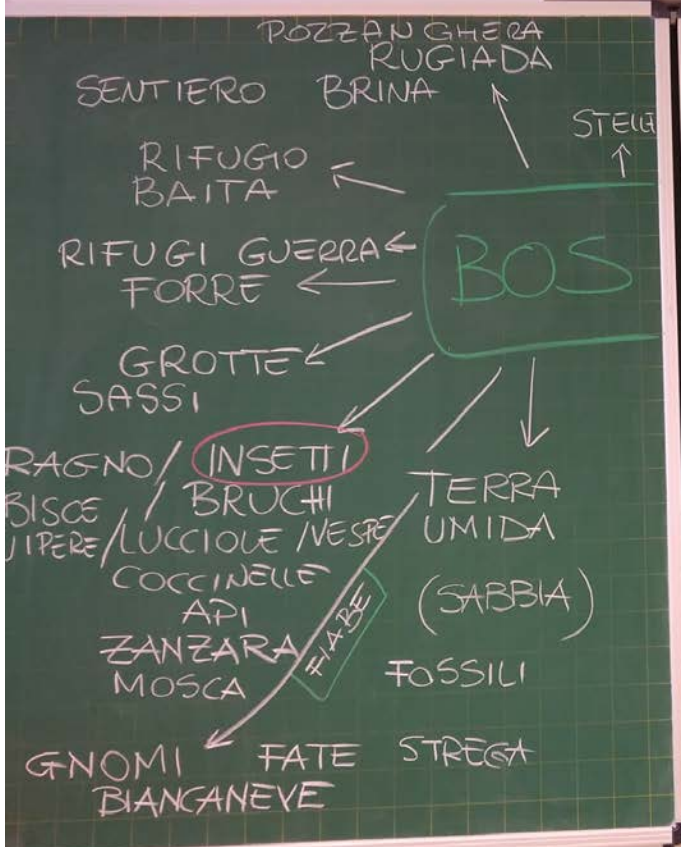 POZZANGHERA
RUGIADA
SENTIERO BRINA
STELLE
RIFUGIO
BAITA
BOS
RIFUGI GUERRA
FORRE
GROTTE
SASSI
RAGNO/ INSETTI
BISCE / BRUCHI
VIPERE/LUCCIOLE/VESPE
COCCINELLE
API
ZANZARA
MOSCA
TERRA
UMIDA
(SABBIA)
FIABE
FOSSILI
GNOMI FATE STREGA
BIANCANEVE